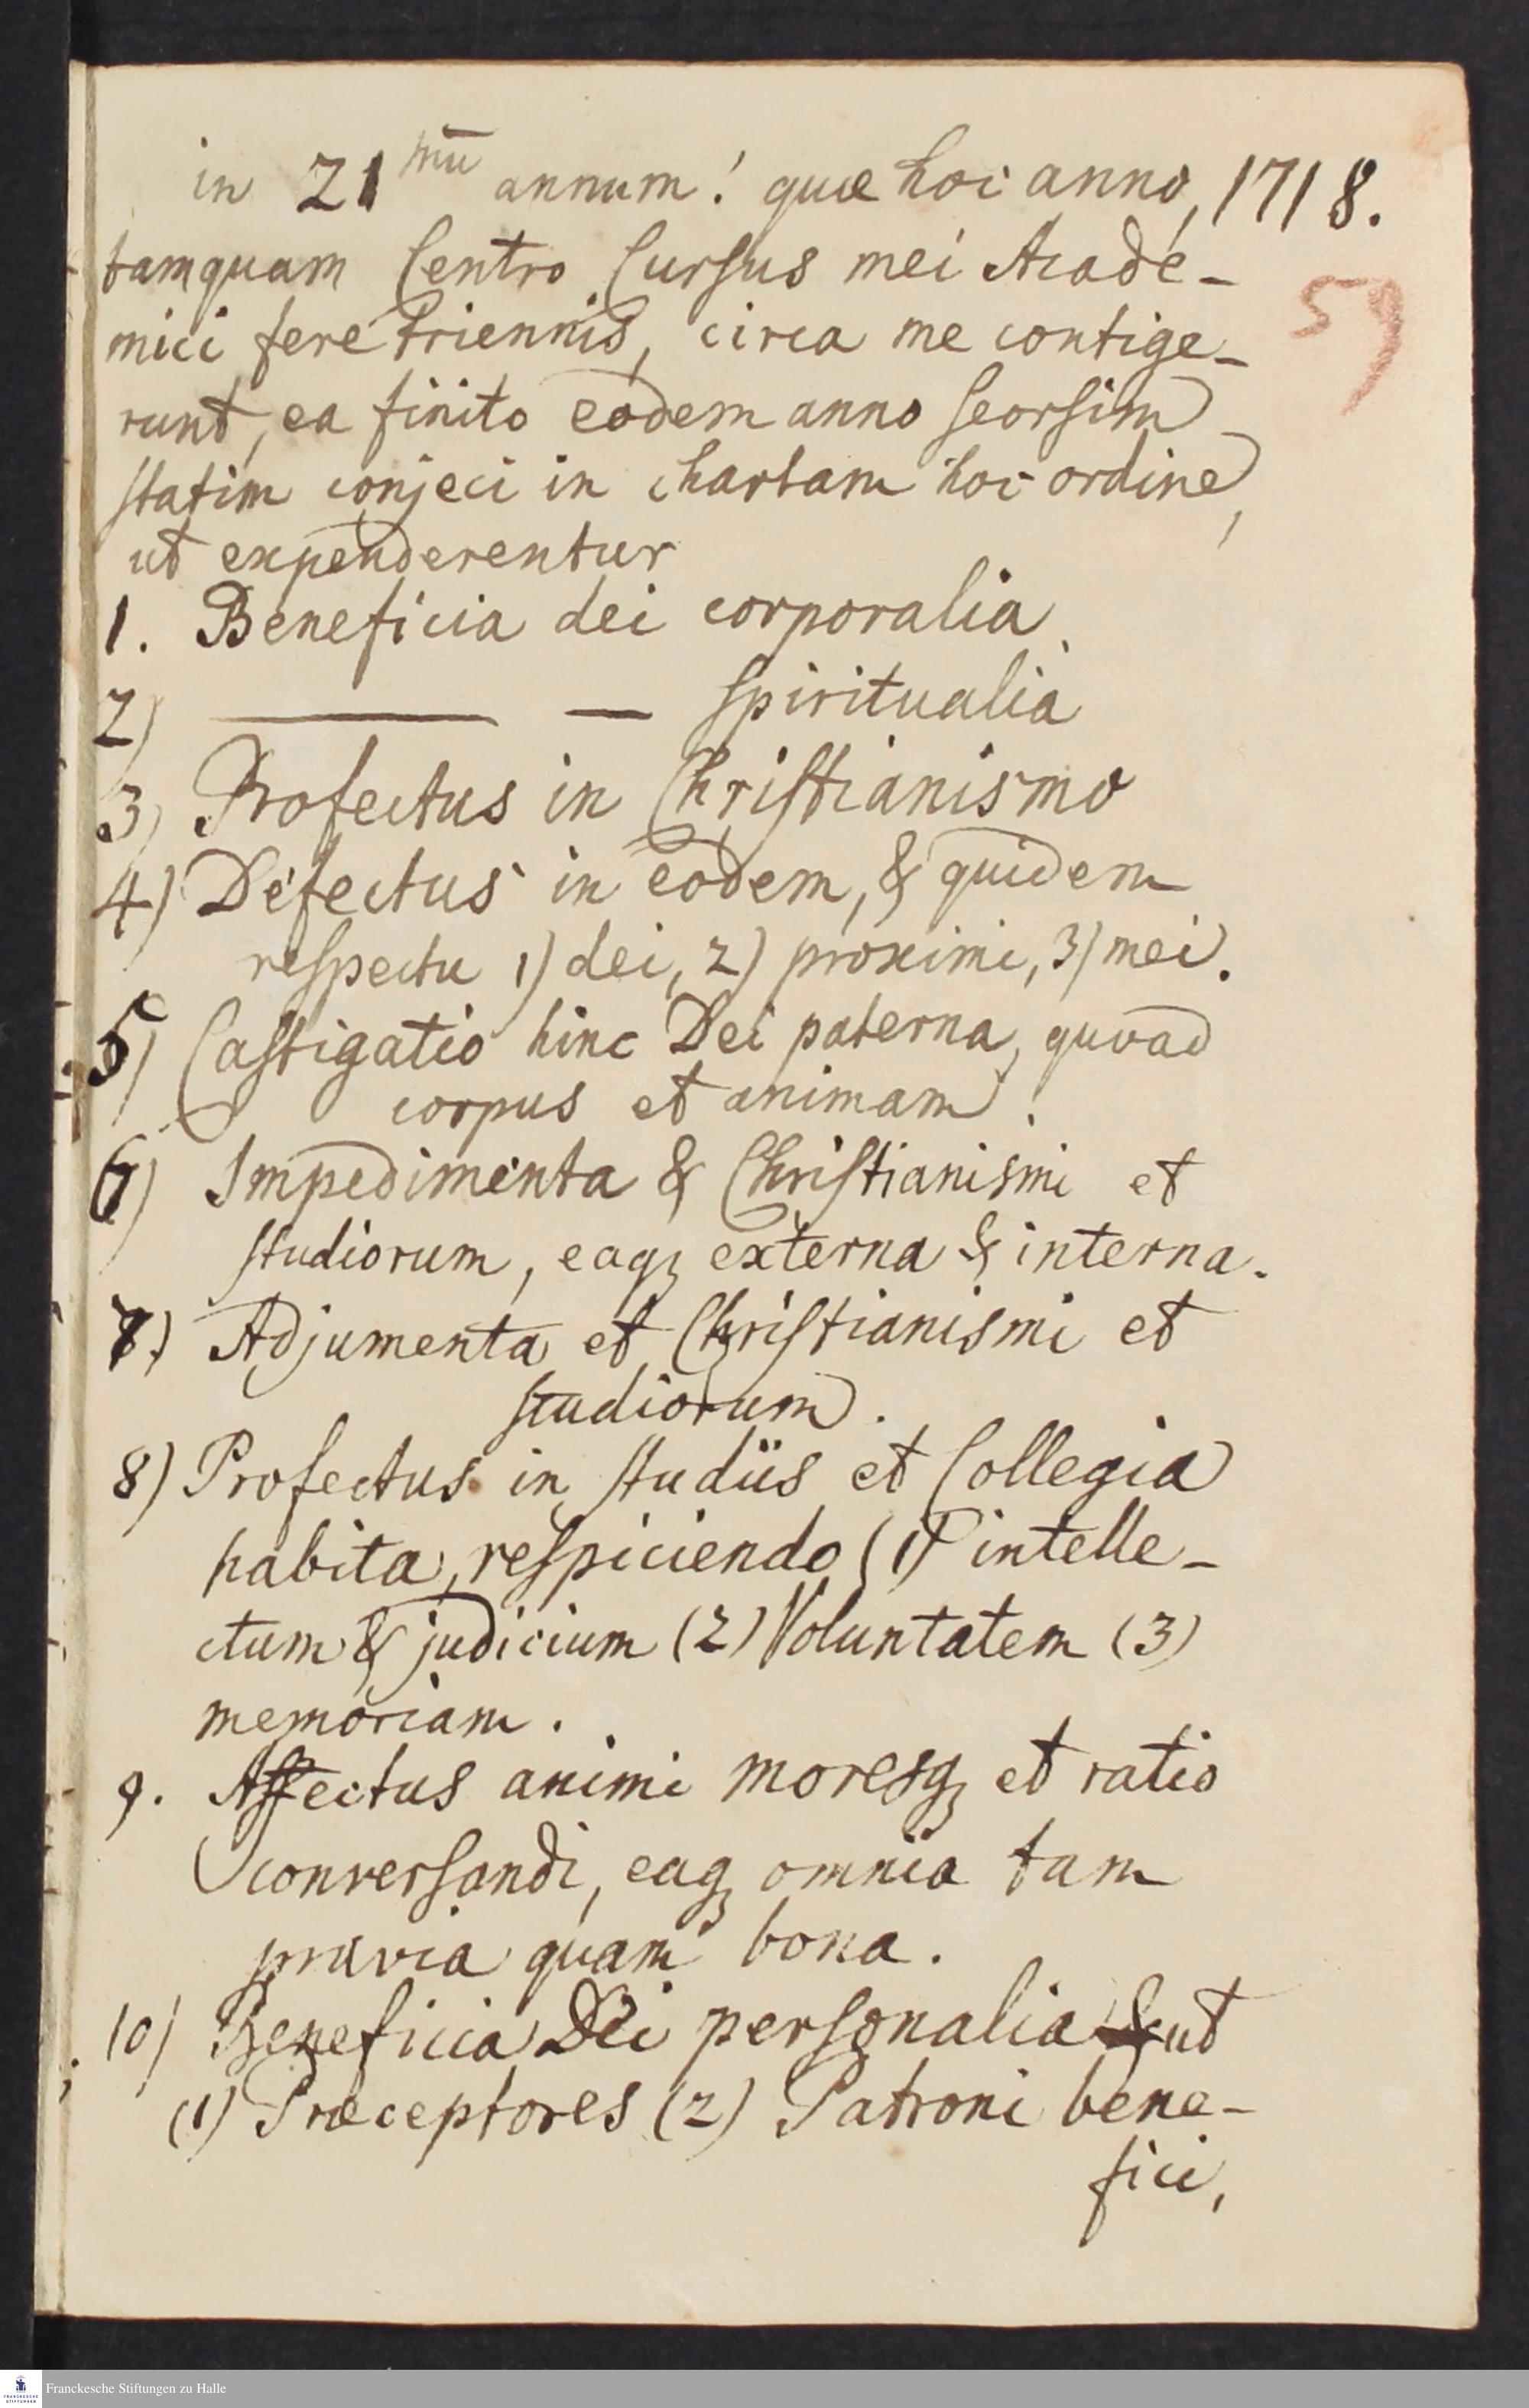 in 21mū annum! quæ hoc anno, 1718.
59
tamquam Centro Cursus mei Acade-
mici fere triennis, circa me contige-
runt, ea finito eodem anno seorsim
statim conjeci in chartam hoc ordine,
ut expenderentur
1. Beneficia dei corporalia.
2) ——— — spiritualia
3) Profectus in Christianismo
4) Defectus in eodem, & quidem
respectu 1) dei, 2) proximi, 3) mei.
5) Castigatio hinc Dei paterna, quoad
corpus et animam.
6) Impedimenta & Christianismi et
studiorum, eaqꝫ externa & interna.
7.) Adjumenta et Christianismi et
studiorum.
8) Profectus in studiis et Collegia
habita, respiciendo (1) intelle-
ctum & judicium (2) Voluntatem (3)
memoriam.
9. Affectus animi moresqꝫ et ratio
conversandi, eaqꝫ omnia tam
quam bona.
10) Beneficia Dei personalia ut
(1) Præceptores (2) Patroni bene-
fici,
Franckesche Stiftungen zu Halle
FRANCKESCHE
STIFTUNGEN